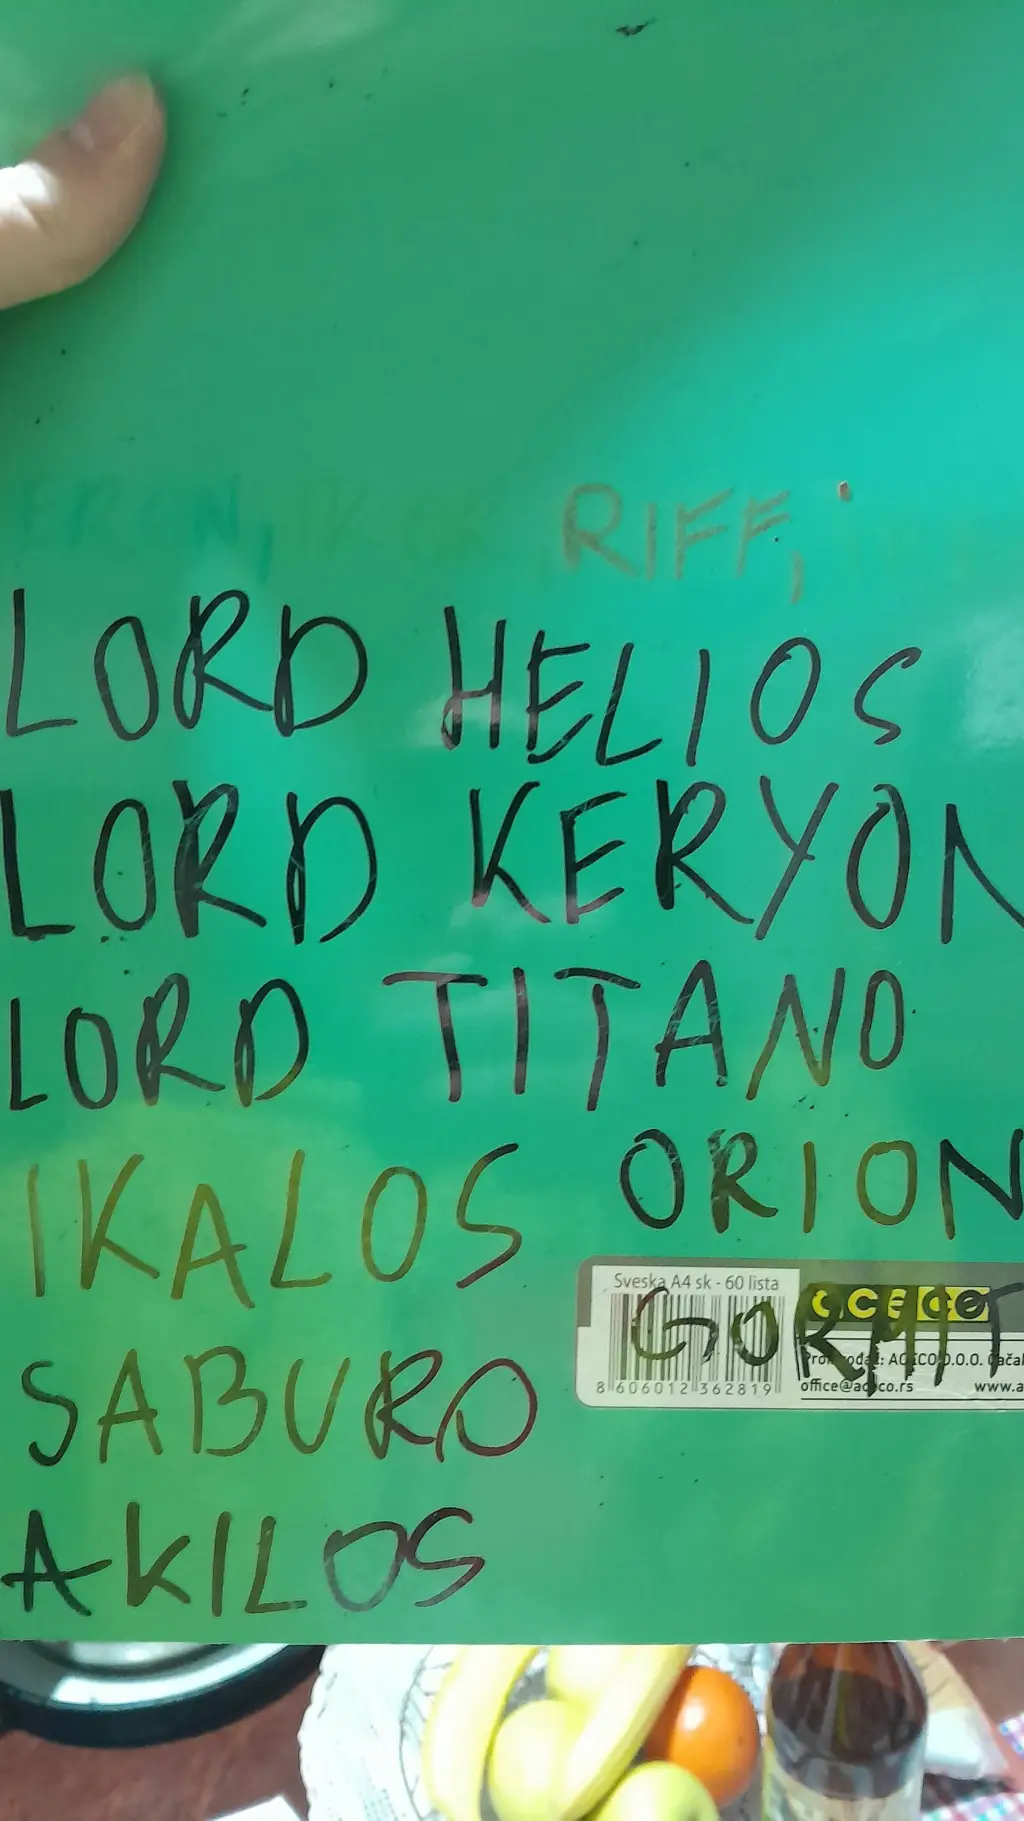 ERON, IKOR RIFF,
LORD HELIOS
LORD KERYON
LORD TITANO
IKALOS ORION
Sveska A4 sk - 60 lista
GORMIT
8 606012 362819
office@aceco.rs www.a
SABURO
AKILOS